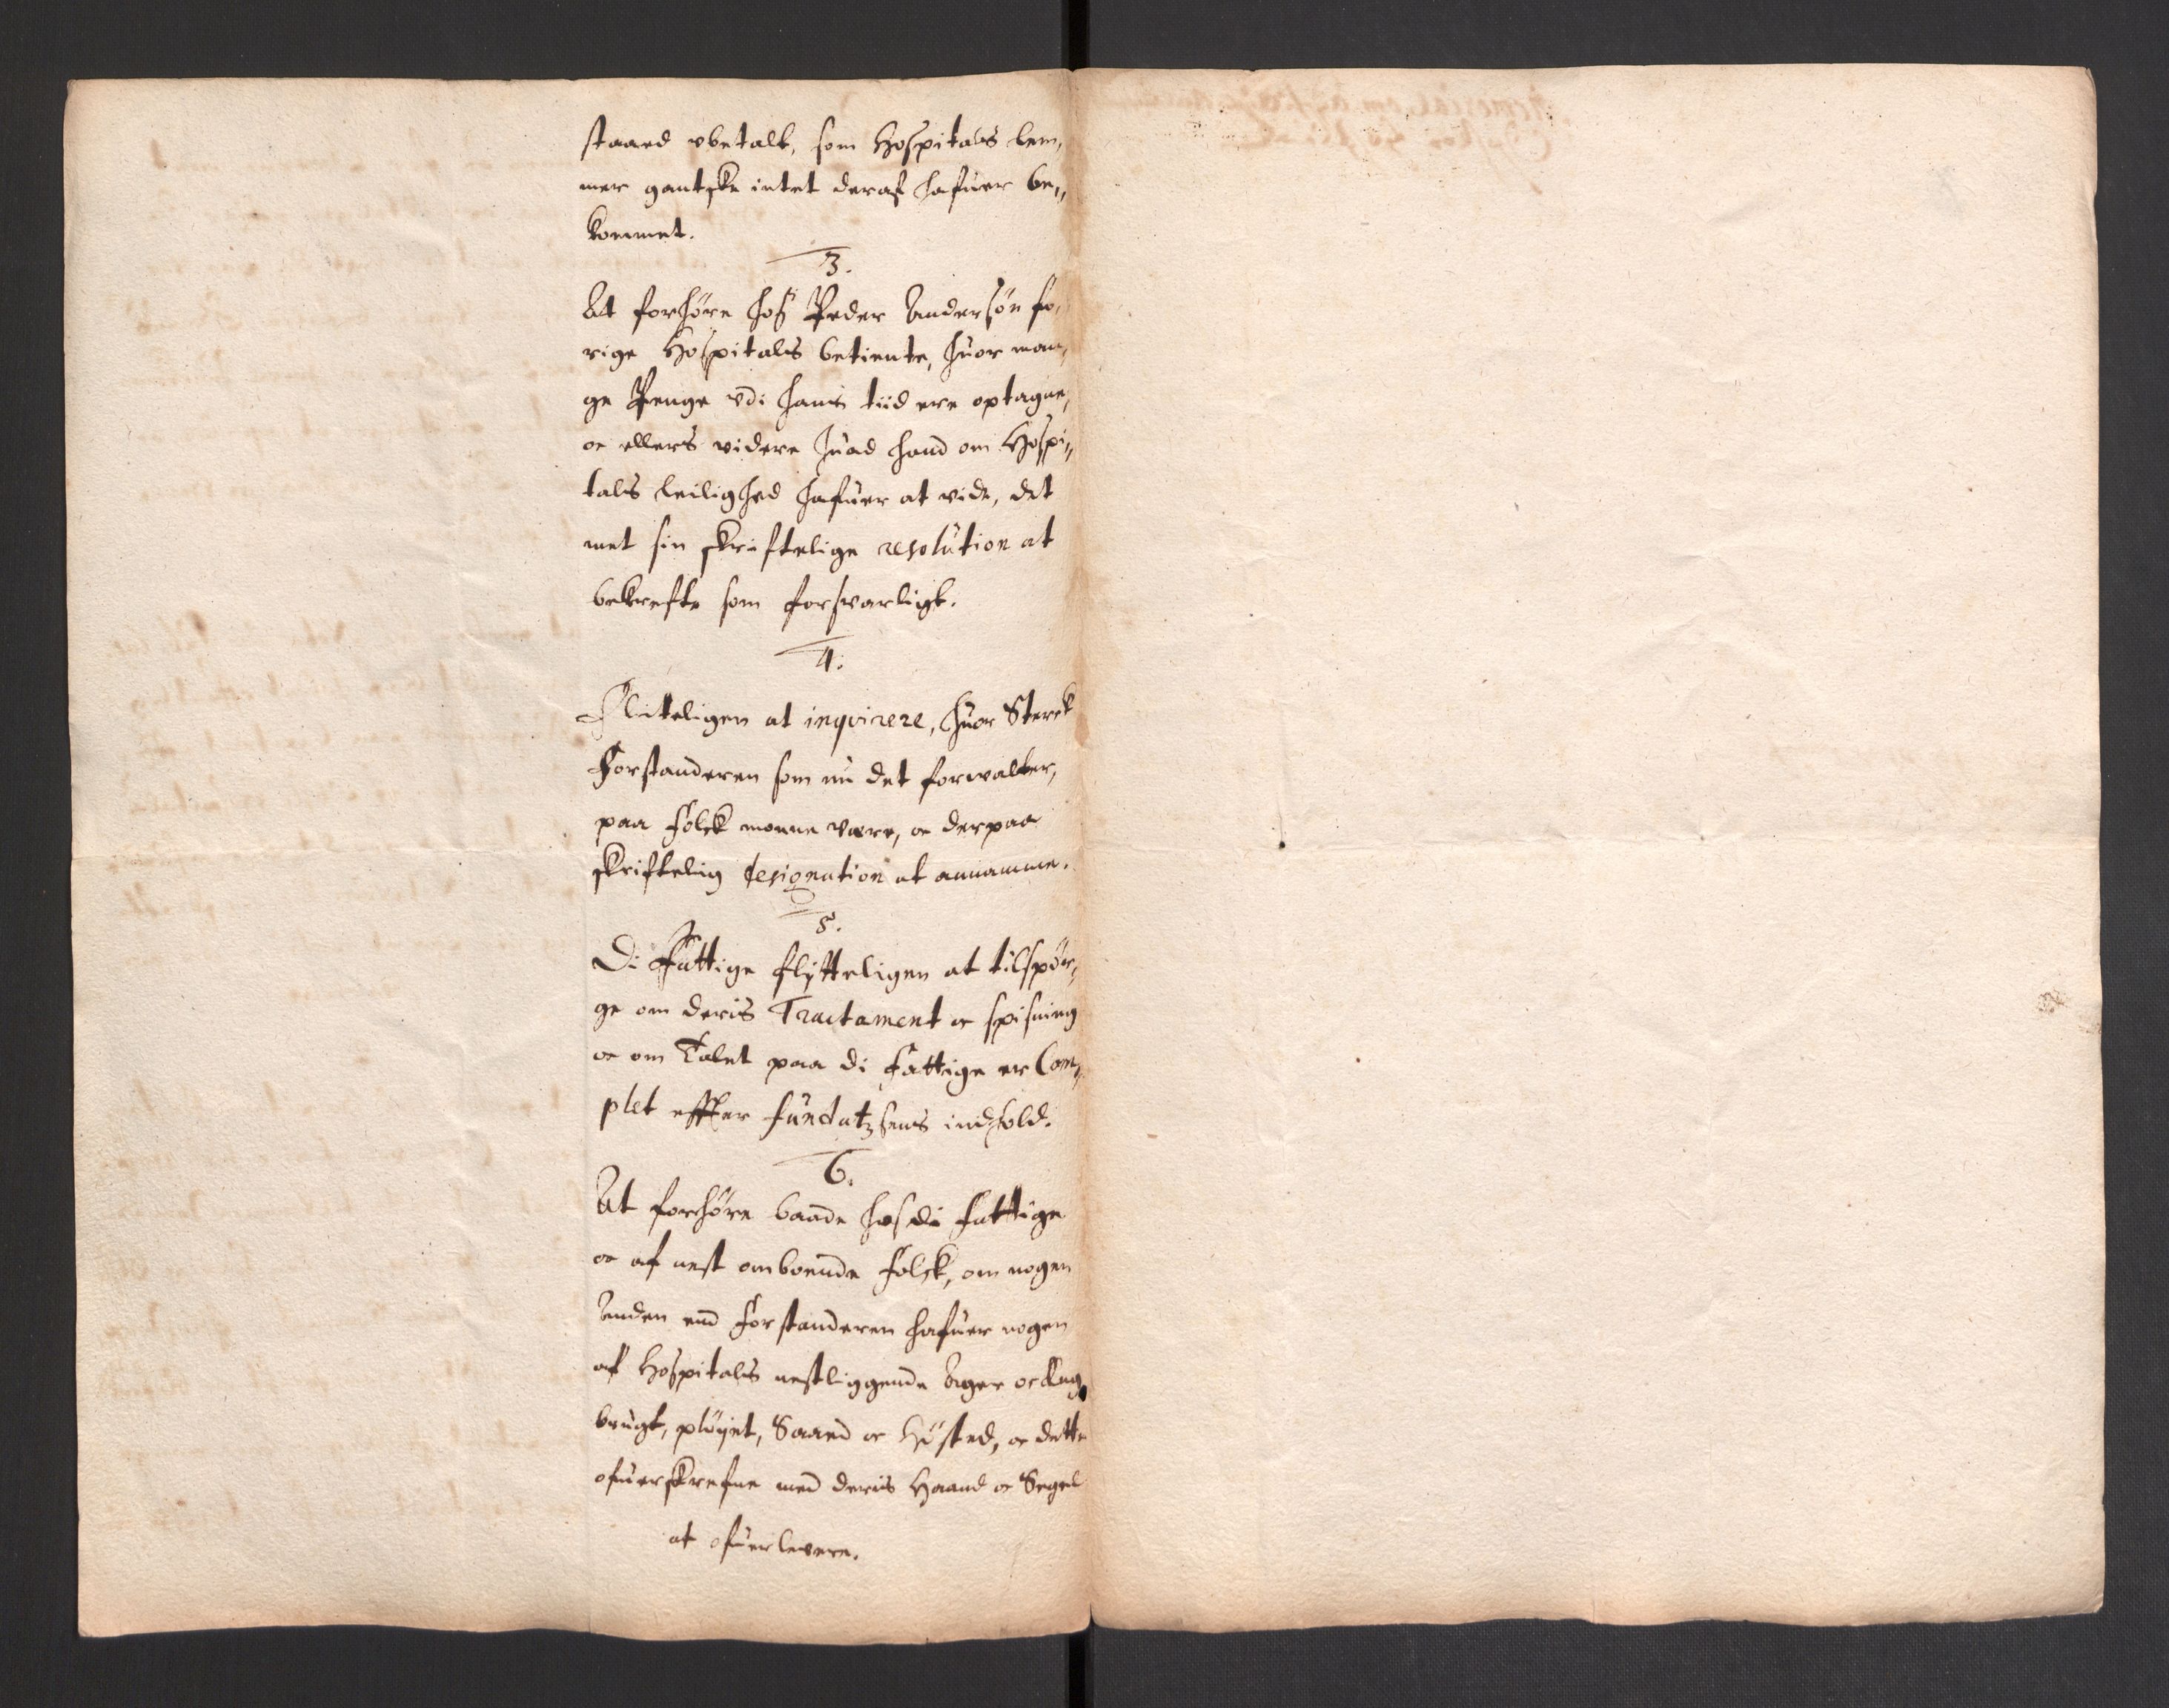 staaed vbetalt, som Hospitals lem,
mer gantske intet deraf hafuer be,,
kommet.
3.
At forhöre hoß Peder Andersön fo,
rige Hospitals betiente, huor man,
ge Penge vdi hans tiid ere optagne,
oc ellers videre huad hand om Hospi,,
tals leilighed hafuer at vide, det
met sin skriftelige resolution at
bekrefte som forsvarligt.
4.
Fliteligen at inqvirere, huor Sterck
Forstanderen som nu det forvalter,
paa Folck monne være, oc derpaa
skriftelig designation at annamme.
5.
Di Fattige flitteligen at tilspör,
ge om deris Tractament oc spisning
oc om Talet paa di Fattige er Com,,
plet effter fundatzsens indhold.
6.
At forhöre baade hos di Fattige
oc af nest omboende Folck, om nogen
Anden end Forstanderen hafuer nogen
af Hospitals nestliggende Ager oc Eng
brugt, plöyet, Saaed oc Hösted, oc dette
ofuerskrefne med deris Haand oc Segel
at ofuerlevere.